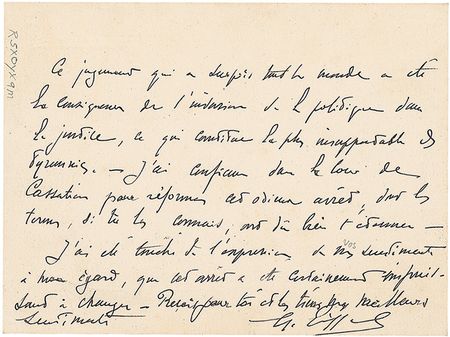 Ce jugement qui a surpris tout le monde a été
la conséquence de l'intrusion de la politique dans
la justice, ce qui constitue la plus insupportable des
tyrannies. — J'ai confiance dans la Cour de
Cassation pour réformer cet odieux arrêt, dont les
termes, si tu les connais, ont dû bien t'étonner —
J'ai été touché de l'expression de vos sentiments
à mon égard, que cet arrêt a été certainement impuis-
sant à changer — Reçois pour toi et les tiens mes meilleurs
sentiments
G. Eiffel